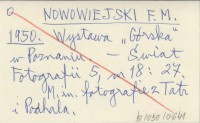 NOWOWIEJSKI F. M.
1950. Wystawa „Górska”
w Poznaniu – Świat
Fotografii 5, n 18: 27.
M. in. fotografie z Tatr
i Podhala.